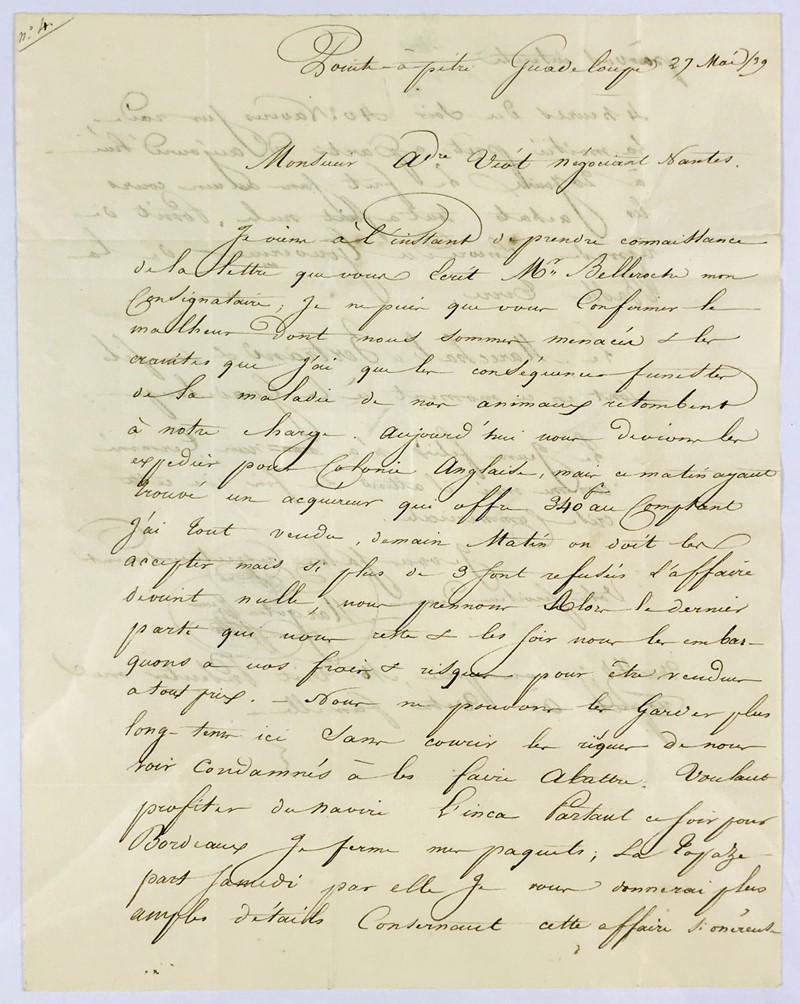 n.° 4.
Pointe-à-pitre Guadeloupe 27 Mai /39
Monsieur Adre Viot négociant Nantes.
Je viens à l'instant de prendre connaissance
de la lettre que vous Ecrit Mr. Belleroche mon
Consignataire; Je ne puis que vous Confirmer le
malheur dont nous sommes menacés & les
craintes que j'ai que les conséquences funestes
de la maladie de nos animaux retombent
à notre charge. aujourd'hui nous devions les
expedier pour Colonie Anglaise, mais ce matin ayant
trouvé un acquéreur qui offre 340 f au Comptant
J'ai tout vendu, demain Matin on doit les
accepter mais si plus de 3 sont refusés l'affaire
devient nulle, nous prennons alors le dernier
parti qui nous reste & les soir nous les embar-
quons à vos frais & risques pour être vendues
a tout prix. — Nous ne pouvons les Garder plus
long-tems ici sans courir les risques de nous
voir Condamnés à les faire Abattre. Voulant
profiter du navire l'inca Partant ce soir pour
Bordeaux Je ferme mes paquets; La Topaze
part Samedi par elle Je vous donnerai plus
amples détails Consernant cette affaire si onéreuse